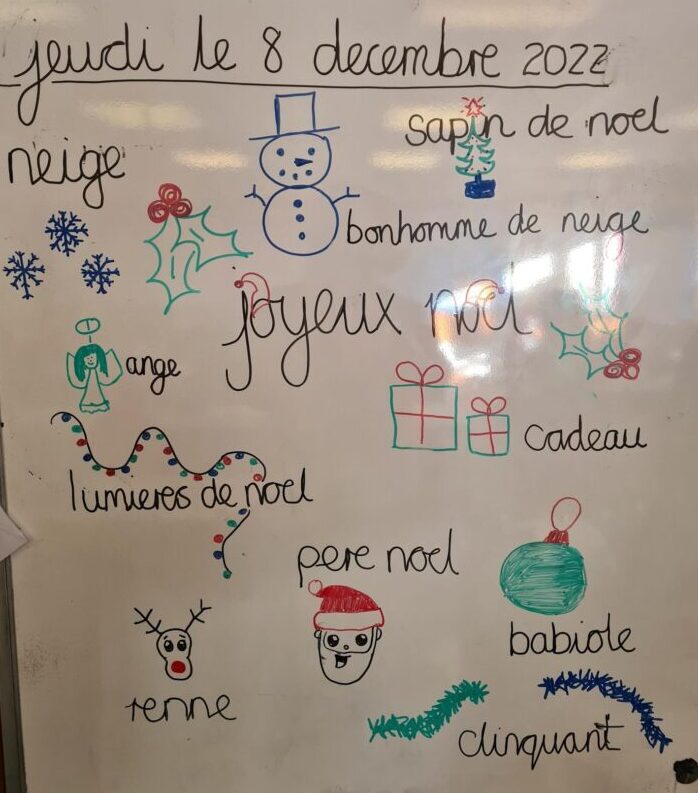 jeudi le 8 decembre 2022
sapin de noel
neige
bonhomme de neige
joyeux noel
ange
cadeau
lumieres de noel
pere noel
babiole
renne
clinquant